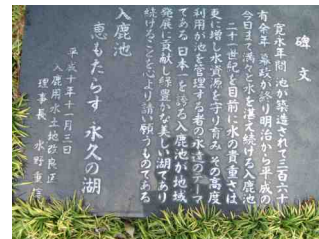 碑文
寛永年間池が築造されて三百六十
有余年 幕政が終り明治から平成の
今日まで満々と水を湛え続ける入鹿池
二十一世紀を目前に水の貴重さは
更に増し水資源を守り育み その高度
利用が池を管理する者の永遠のテーマ
である 日本一を誇る入鹿池が地域
発展に貢献し緑豊かな美しい湖であり
続けることを心より請い願うものである
入鹿池
恵もたらす 永久の湖
平成十年十一月三日
入鹿用水土地改良区
理事長 水野重